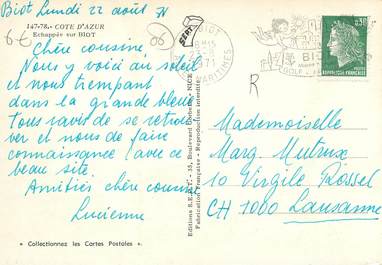 Biot Lundi 22 août 71
147-78. - COTE D'AZUR
Echappée sur BIOT
Chère cousine,
Nous y voici au soleil
et nous trempant
dans la grande bleue
Tous ravis de se retrou-
ver et nous de faire
connaissance avec ce
beau site.
Amitiés chère cousine
Lucienne
« Collectionnez les Cartes Postales ».
Editions S.E.P.T. - 35, Boulevard - NICE
Fabrication Française - Reproduction interdite
SEPT
BIOT
MARITIMES
0.30
R
Mademoiselle
Marg. Mutrux
10 Virgile Rossel
CH 1000 Lausanne